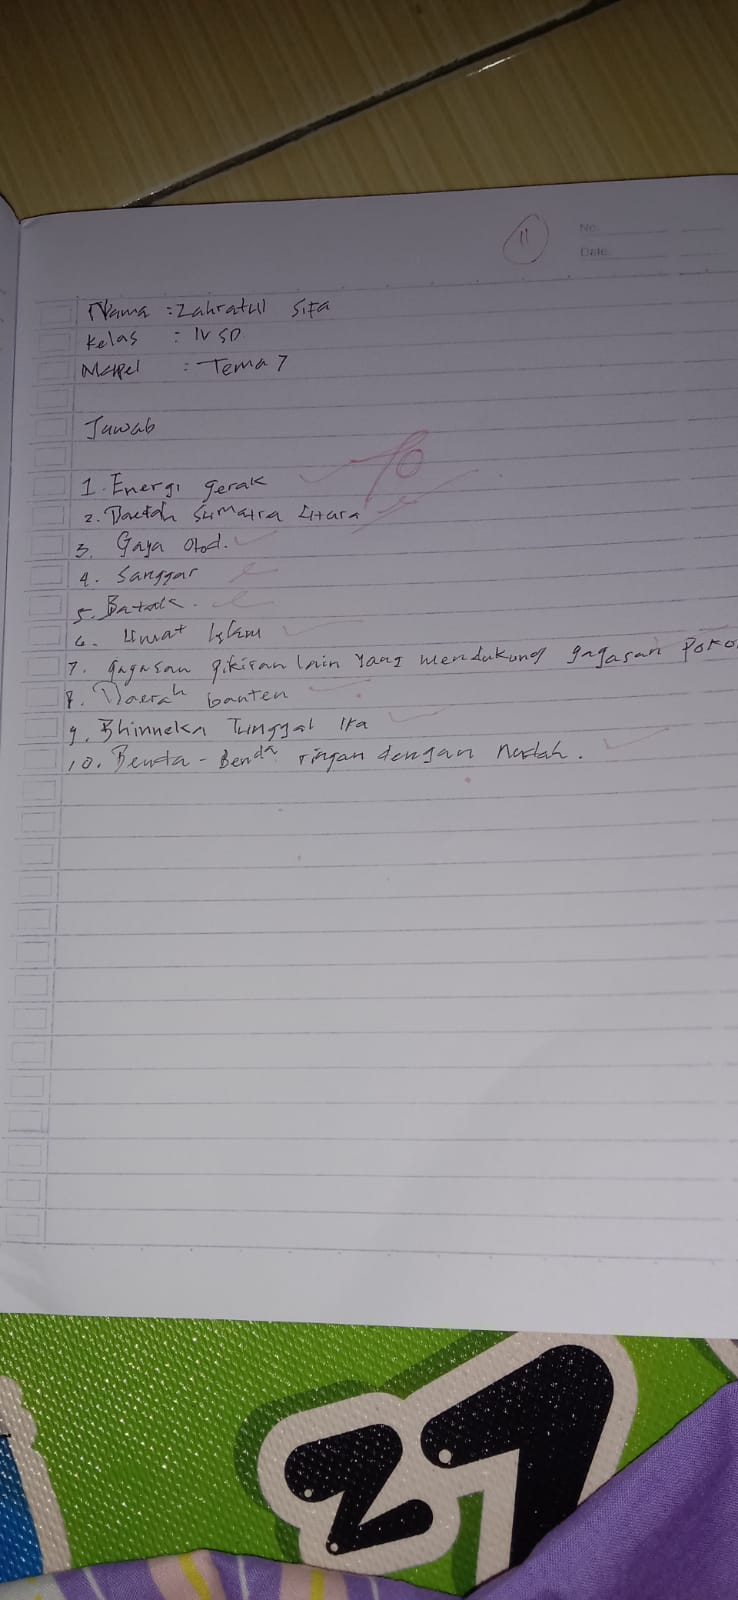 11
No
Date
Nama : Zahratul Sifa
Kelas : IV SD
Mapel : Tema 7
Jawab
1. Energi gerak
2. Daerah Sumatra Utara
3. Gaya otot.
4. Sanggar
5. Batak.
6. Umat Islam
7. gagasan pikiran lain yang mendukung gagasan poko
8. Daerah banten
9. Bhinneka Tunggal Ika
10. Benda - Benda ringan dengan mudah.
37